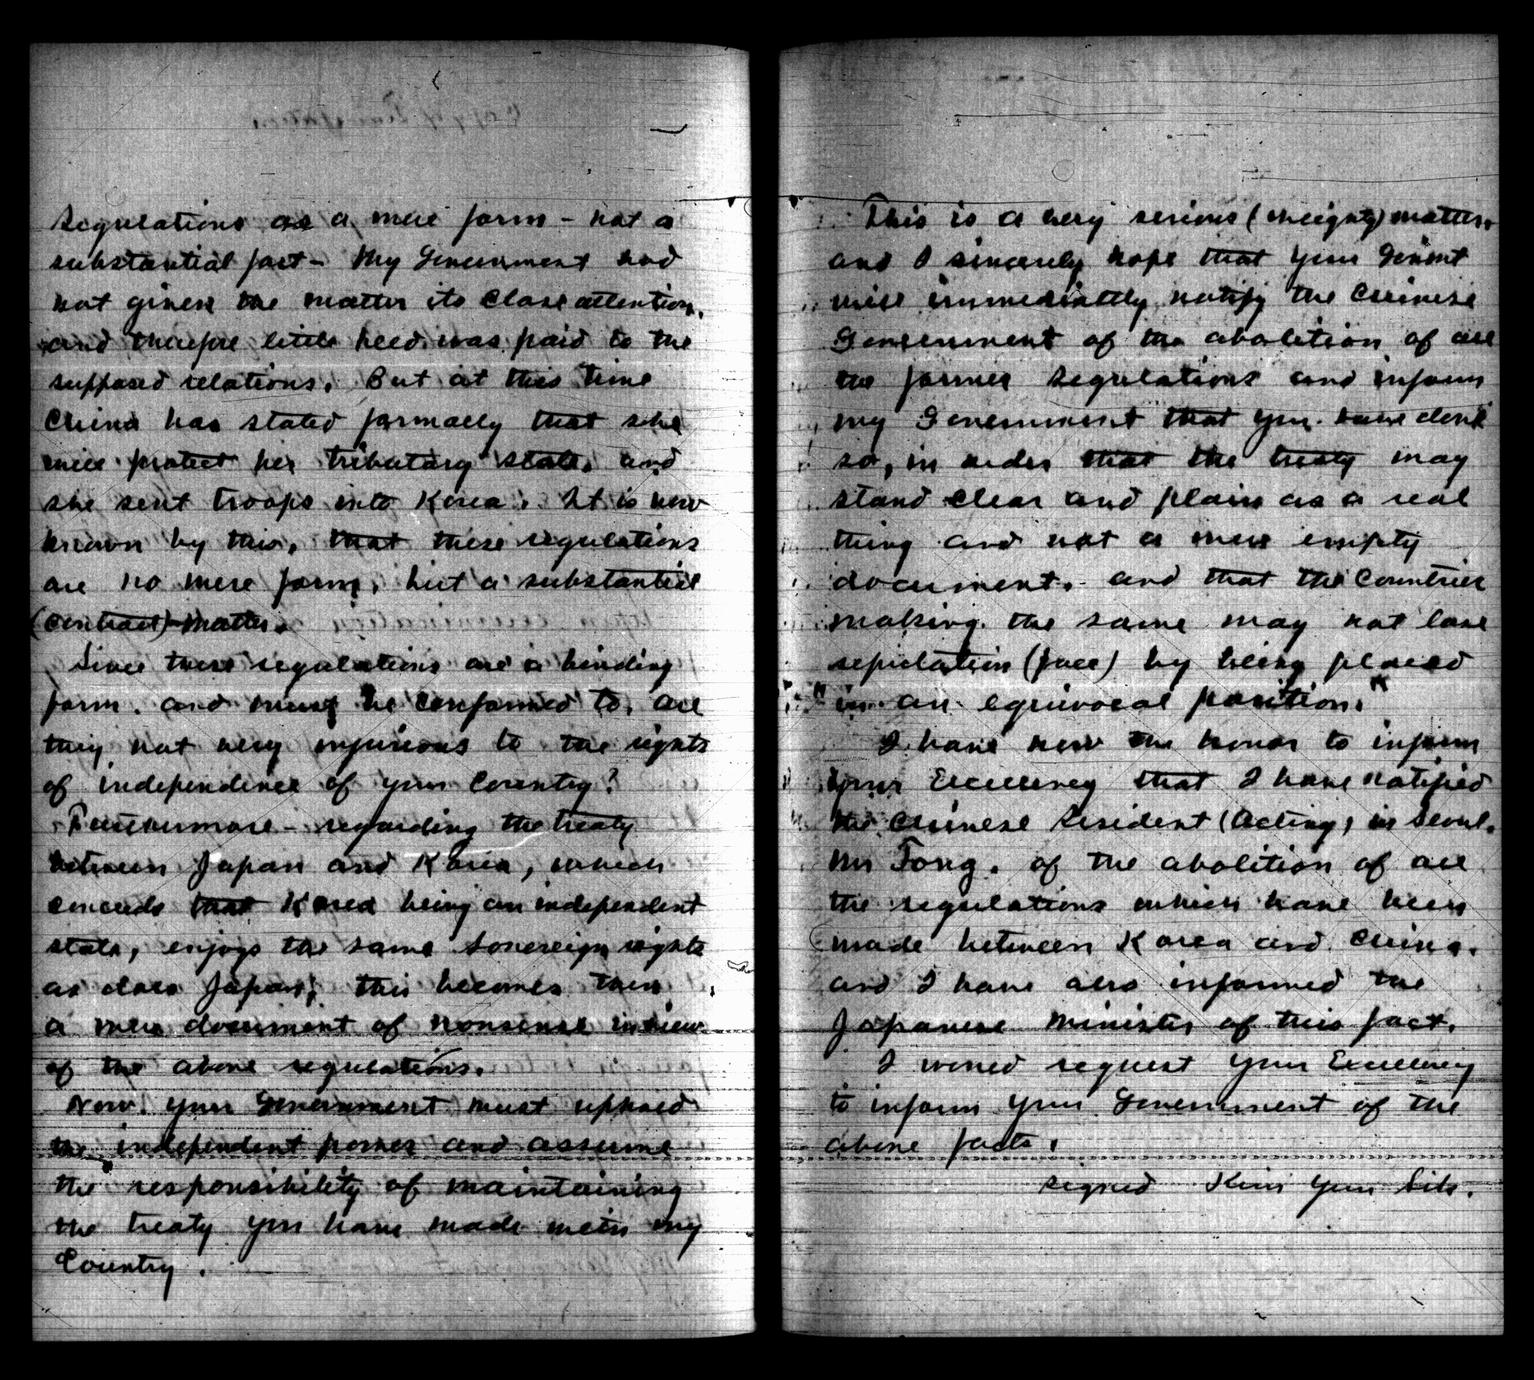 regulations as a mere form - not a
substantial fact - My Government had
not given the matter its close attention,
and therefore little heed was paid to the
supposed relations. But at this time
China has stated formally that she
will protect her tributary state, and
she sent troops into Korea. It is now
known by this, that these regulations
are no mere form, but a substantial
(contract) matter.
Since these regulations are a binding
form. and must be conformed to, are
they not very injurious to the rights
of independence of your Country?
Furthermore - regarding the treaty
between Japan and Korea, which
concedes that Korea being an independent
state, enjoys the same Sovereign rights
as does Japan; this becomes then
a mere document of nonsense in view
of the above regulations.
Now. your Government must uphold
the independent power and assume
the responsibility of maintaining
the treaty you have made with my
Country.
This is a very serious (weighty) matter.
and I sincerely hope that your Govmt
will immediately notify the Chinese
Government of the abolition of all
the former regulations and inform
my Government that you have done
so, in order that the treaty may
stand clear and plain as a real
thing and not a mere empty
document. and that the Countries
making the same may not lose
reputation (face) by being placed
"in an equivocal position."
I have now the honor to inform
your Excellency that I have notified
the Chinese Resident (Acting) in Seoul.
Mr Tong. of the abolition of all
the regulations which have been
made between Korea and China.
and I have also informed the
Japanese Minister of this fact.
I would request your Excellency
to inform your Government of the
above facts.
signed Kim Yun Sik.